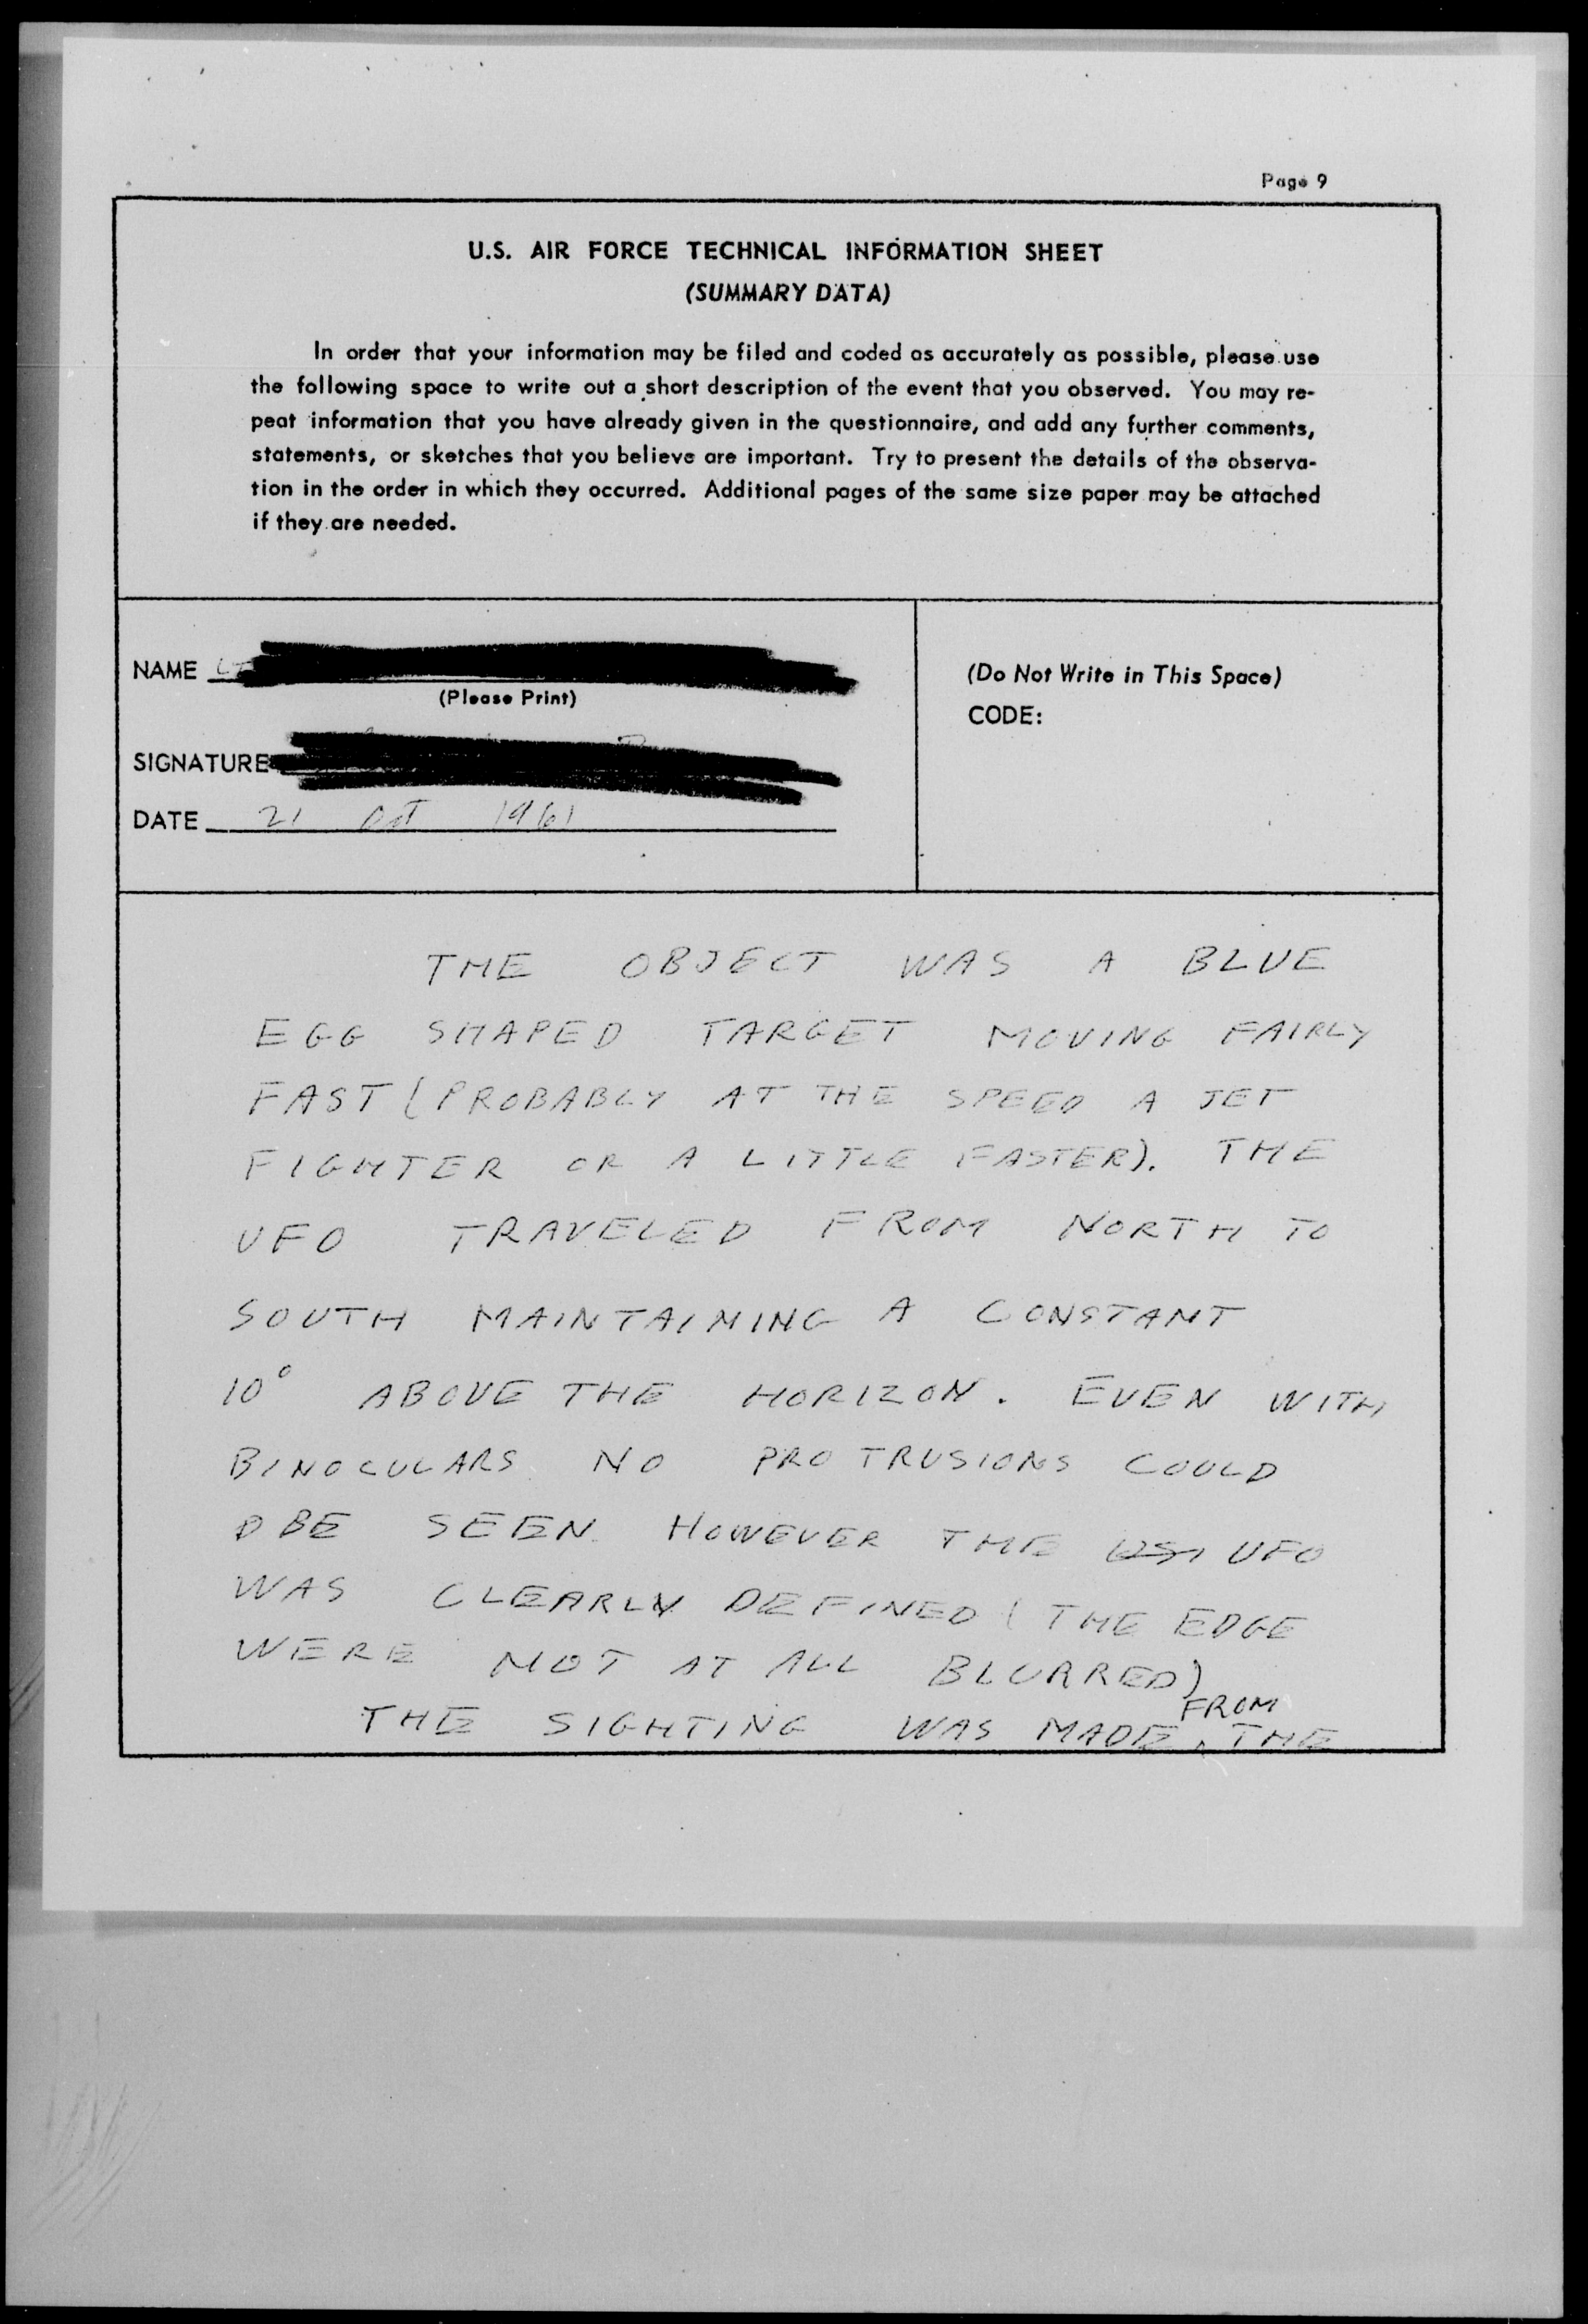 Page 9
U.S. AIR FORCE TECHNICAL INFORMATION SHEET
(SUMMARY DATA)
In order that your information may be filed and coded as accurately as possible, please use
the following space to write out a short description of the event that you observed. You may re-
peat information that you have already given in the questionnaire, and add any further comments,
statements, or sketches that you believe are important. Try to present the details of the observa-
tion in the order in which they occurred. Additional pages of the same size paper may be attached
if they are needed.
NAME LT
(Please Print)
SIGNATURE
DATE 21 Oct 1961
(Do Not Write in This Space)
CODE:
THE OBJECT WAS A BLUE
EGG SHAPED TARGET MOVING FAIRLY
FAST (PROBABLY AT THE SPEED A JET
FIGHTER OR A LITTLE FASTER). THE
UFO TRAVELED FROM NORTH TO
SOUTH MAINTAINING A CONSTANT
10° ABOVE THE HORIZON. EVEN WITH
BINOCULARS NO PROTRUSIONS COULD
BE SEEN. HOWEVER THE UFO
WAS CLEARLY DEFINED (THE EDGE
WERE NOT AT ALL BLURRED)
THE SIGHTING WAS MADE FROM THE